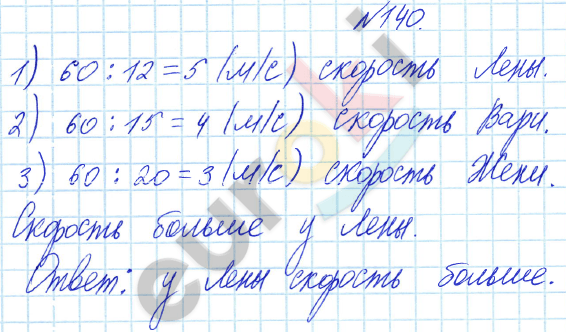 №140.
1) 60 : 12 = 5 (м/с) скорость Лены.
2) 60 : 15 = 4 (м/с) скорость Вари.
3) 60 : 20 = 3 (м/с) скорость Жени.
Скорость больше у Лены.
Ответ: у Лены скорость больше.
euroki